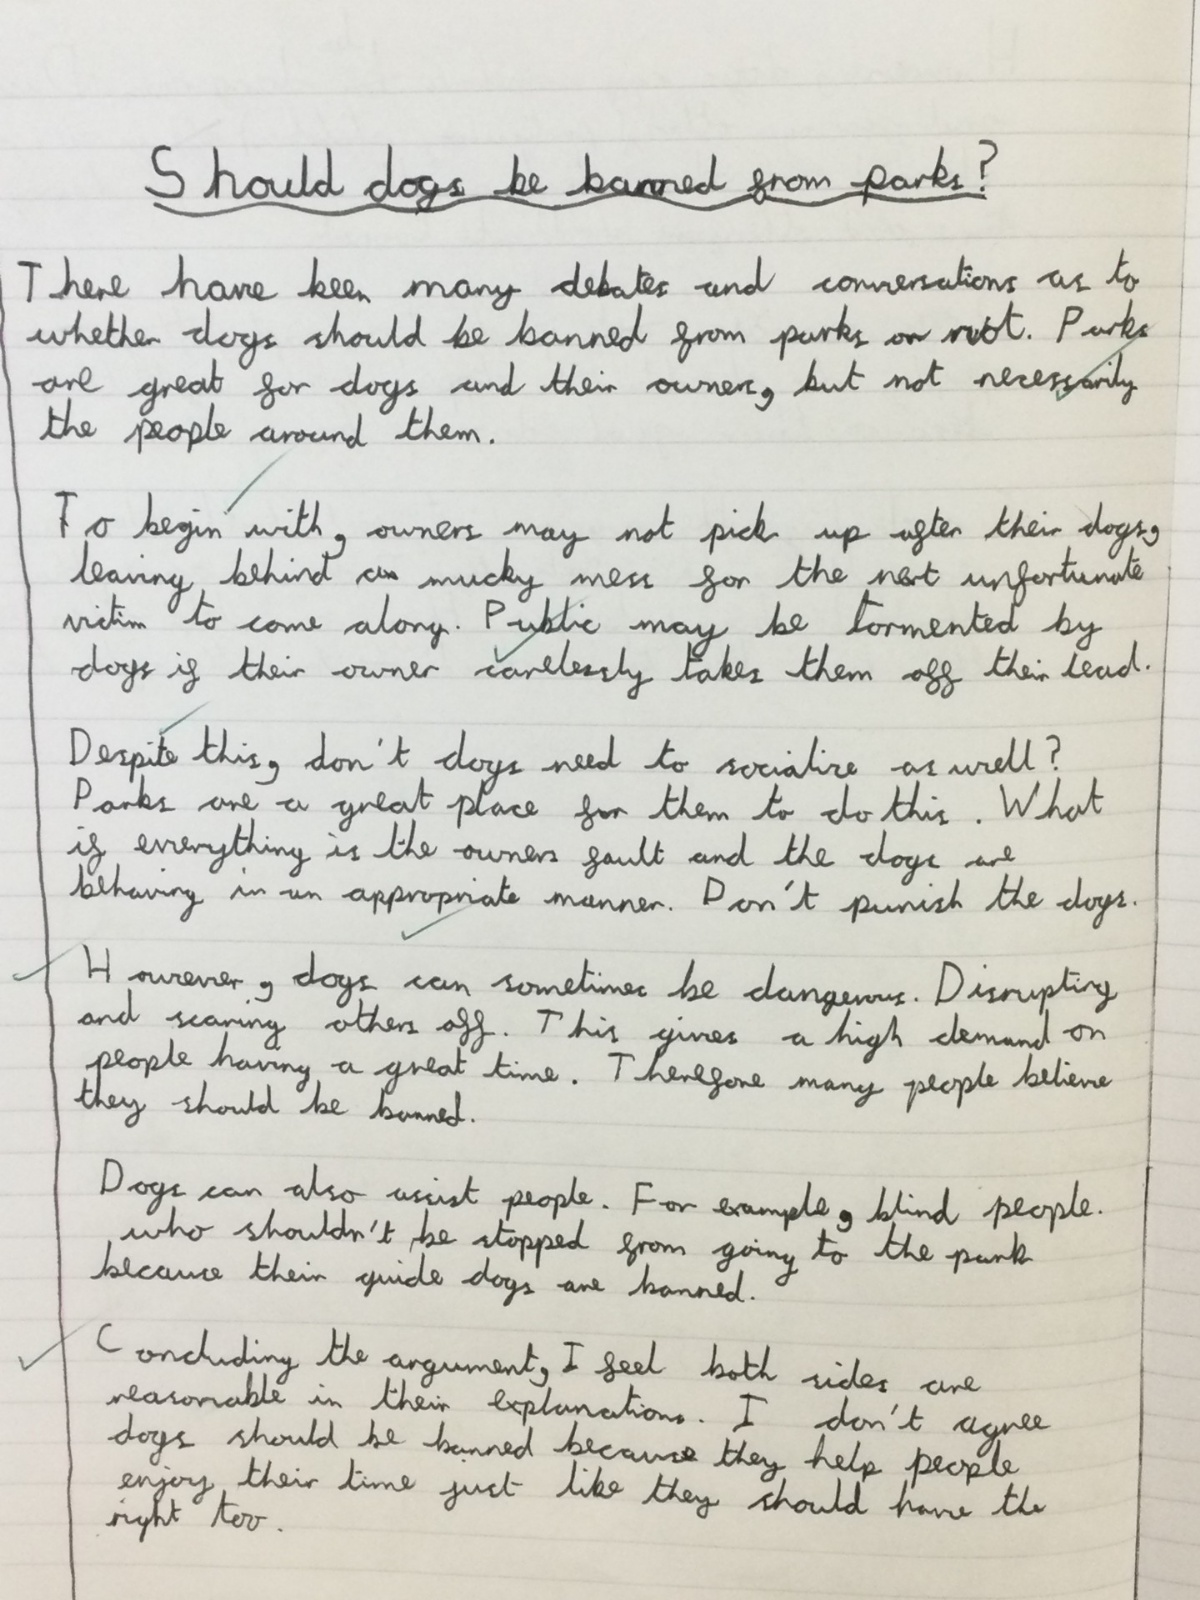 Should dogs be banned from parks?
There have been many debates and conversations as to
whether dogs should be banned from parks or not. Parks
are great for dogs and their owners, but not necessarily
the people around them.
To begin with, owners may not pick up after their dogs,
leaving behind a mucky mess for the next unfortunate
victim to come along. Public may be tormented by
dogs if their owner carelessly takes them off their lead.
Despite this, don't dogs need to socialise as well?
Parks are a great place for them to do this. What
if everything is the owners fault and the dogs are
behaving in an appropriate manner. Don't punish the dogs.
However, dogs can sometimes be dangerous. Disrupting
and scaring others off. This gives a high demand on
people having a great time. Therefore many people believe
they should be banned.
Dogs can also assist people. For example, blind people.
who shouldn't be stopped from going to the park
because their guide dogs are banned.
Concluding the argument, I feel both sides are
reasonable in their explanations. I don't agree
dogs should be banned because they help people
enjoy their time just like they should have the
right too.